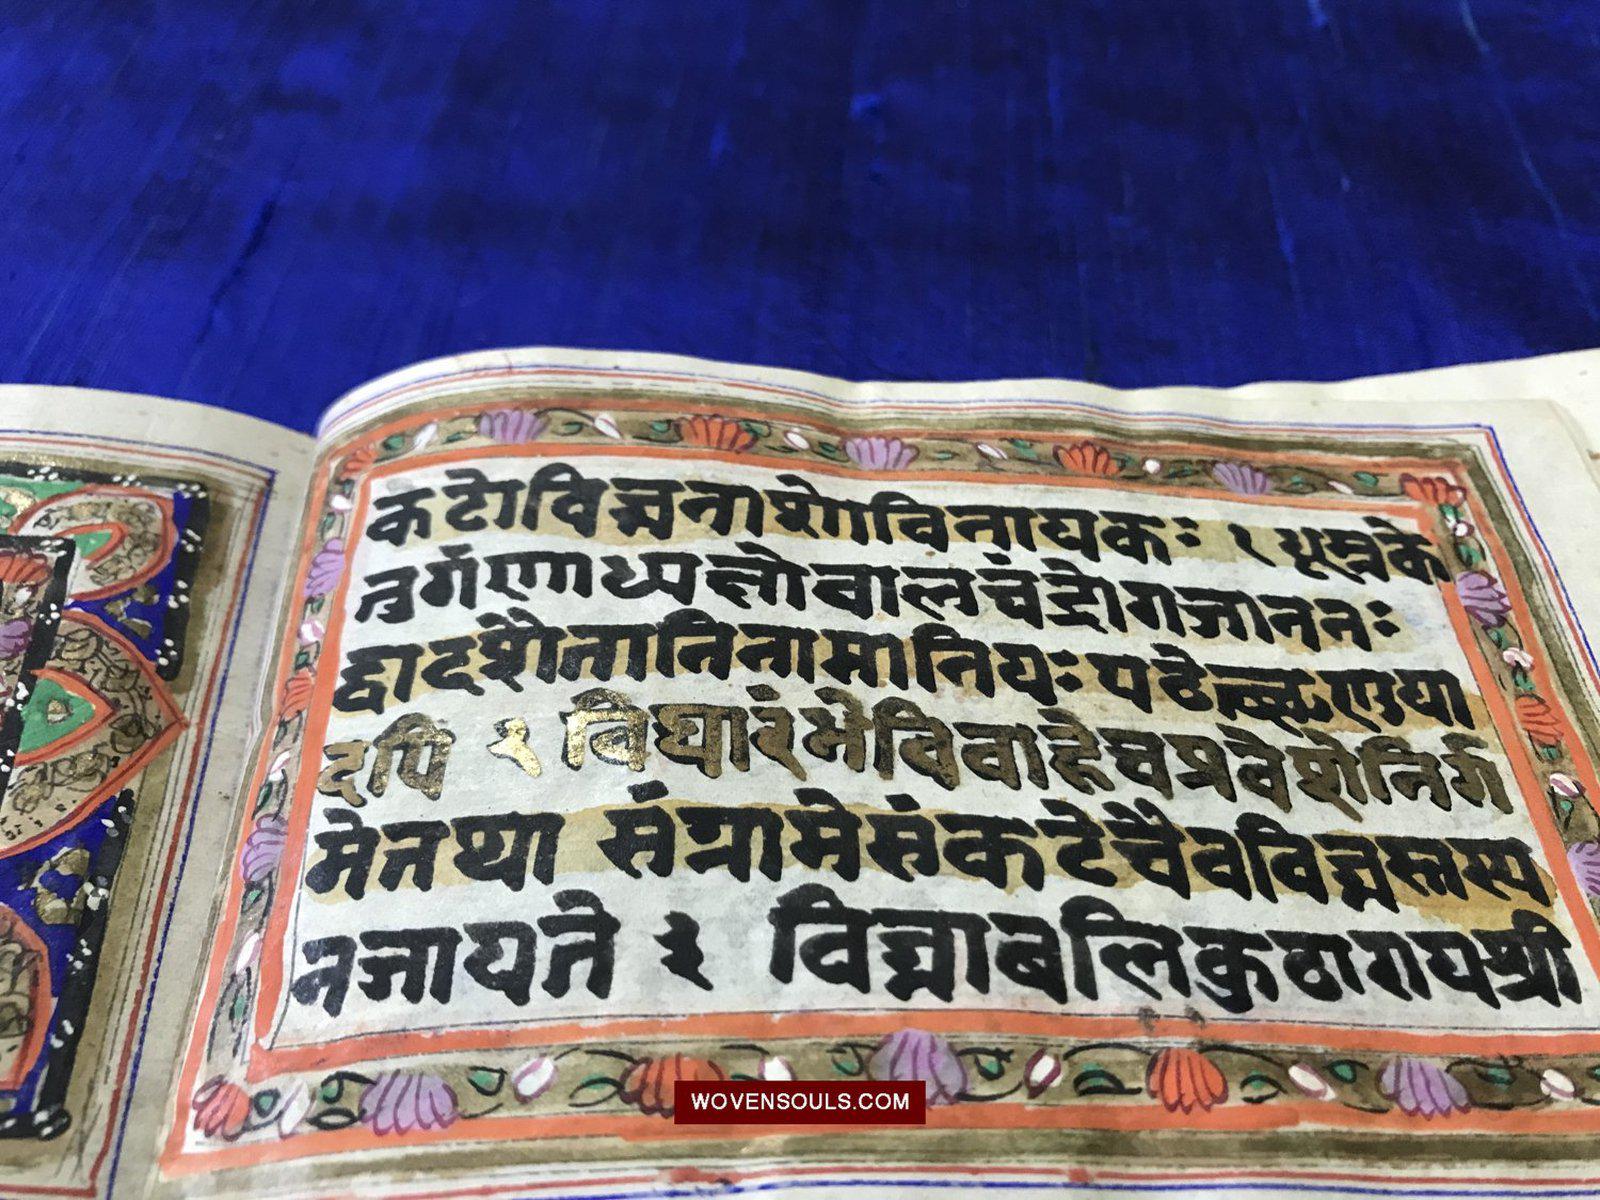 कटोविघ्ननाशोविनायकः १ धूम्रके
तुर्गणाध्यक्षोबालचंद्रोगजाननः
द्वादशैतानिनामानियः पठेच्छृणुया
दपि २ विद्यारंभेविवाहेचप्रवेशेनिर्ग
मेतथा संग्रामेसंकटेचैवविघ्नस्तस्य
नजायते ३ विघ्नाबलिकुठारायश्री
WOVENSOULS.COM